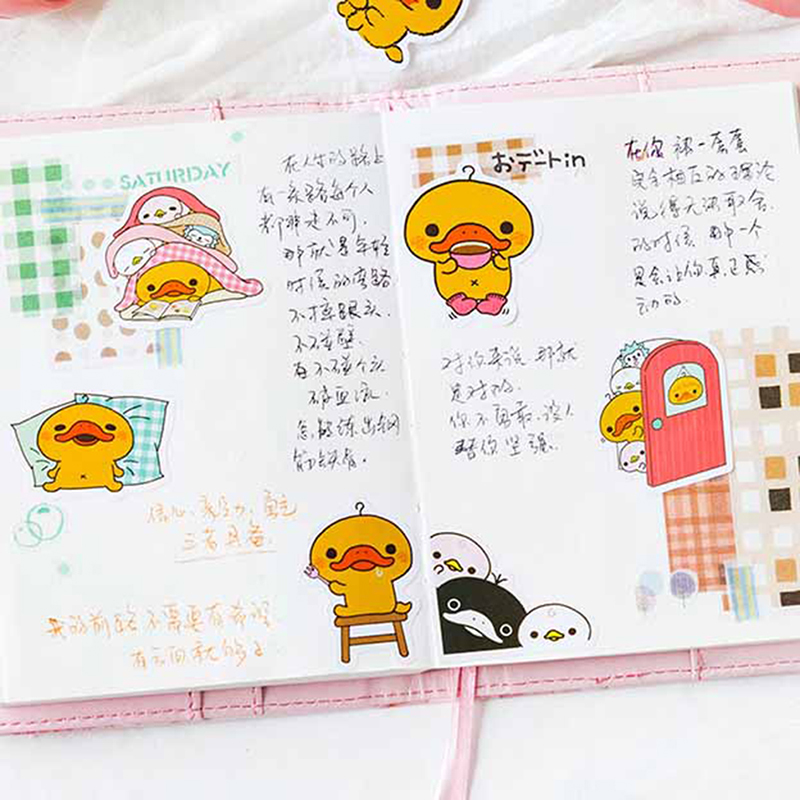 SATURDAY
在人生的路上
有一条路每个人
都非走不可,
那就是年轻
时候的弯路
不摔跟头,
不碰壁
有不碰个头
不破血流
怎能炼出钢
筋铁骨。
信心、毅力、勇气
三者具备
我的前路不需要有希望
有方向就够了
おデートin
在你被一套套
完全相反的理论
说得无法取舍
的时候 那一个
是会让你真正感
动的
对你来说 那就
是对的
你不勇敢,没人
替你坚强